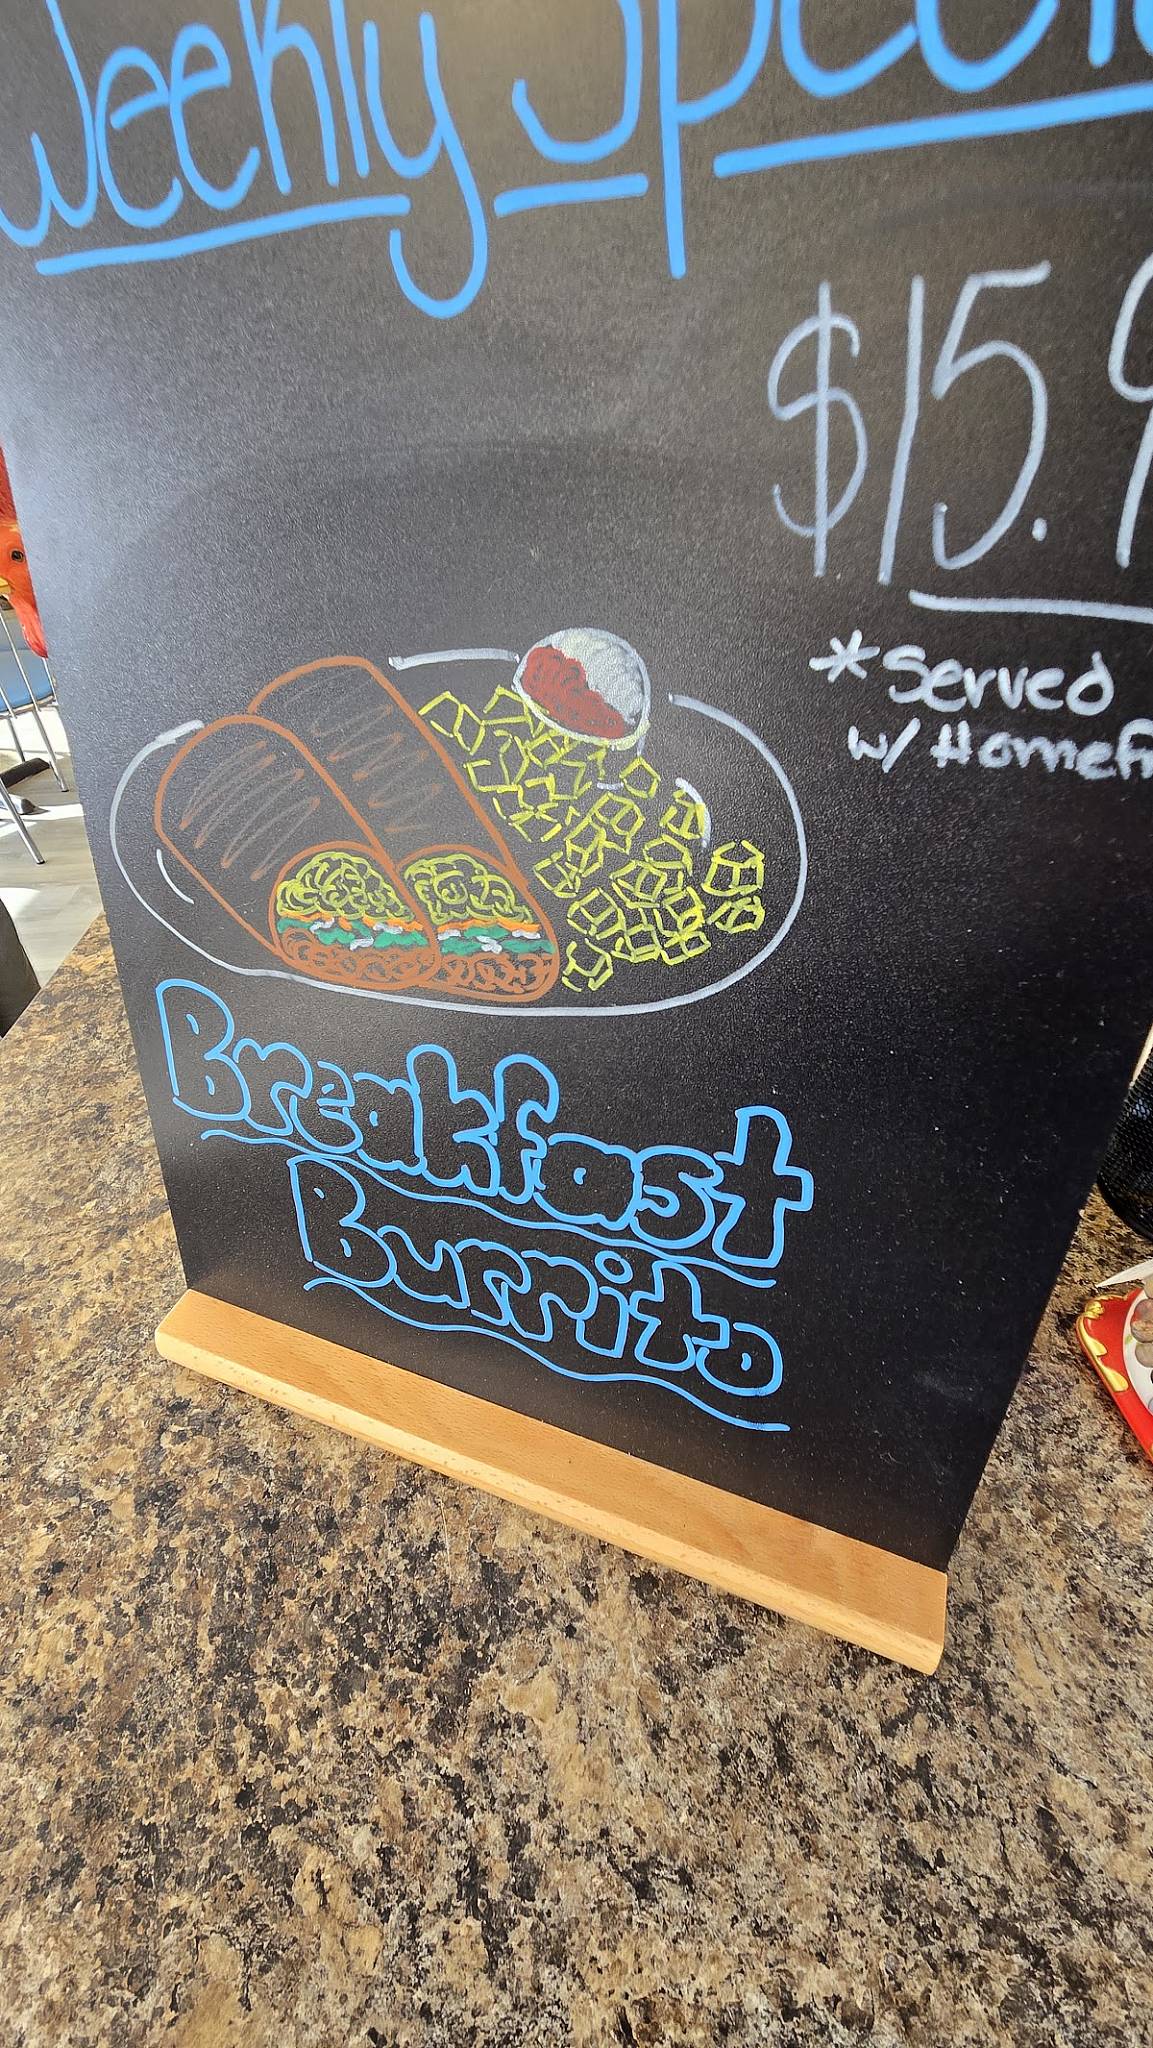 Weekly Speci
$15.9
*Served
w/ Homef
Breakfast
Burrito